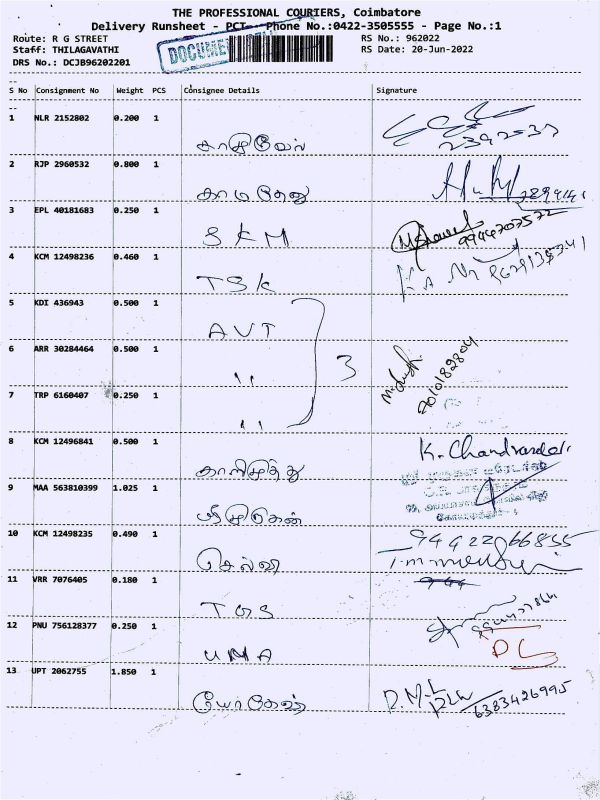 THE PROFESSIONAL COURIERS, Coimbatore
Delivery Runsheet - PCT - Phone No.:0422-3505555 - Page No.:1
Route: R G STREET RS No.: 962022
Staff: THILAGAVATHI RS Date: 20-Jun-2022
DRS No.: DCJB96202201
S No Consignment No Weight PCS Consignee Details Signature
1 NLR 2152802 0.200 1
2 RJP 2960532 0.800 1
காமதேனு
3 EPL 40181683 0.250 1
SKM
4 KCM 12498236 0.460 1
TSK
5 KDI 436943 0.500 1
AVT
6 ARR 30284464 0.500 1
" 3
7 TRP 6160407 0.250 1
"
8 KCM 12496841 0.500 1
காளிமுத்து
9 MAA 563810399 1.025 1
ஸ்ரீமுருகன்
10 KCM 12498235 0.490 1
செல்வி 9442266855
11 VRR 7076405 0.180 1
TGS
12 PNU 756128377 0.250 1
UMA
13 UPT 2062755 1.850 1
யோகேஷ் 6383426995